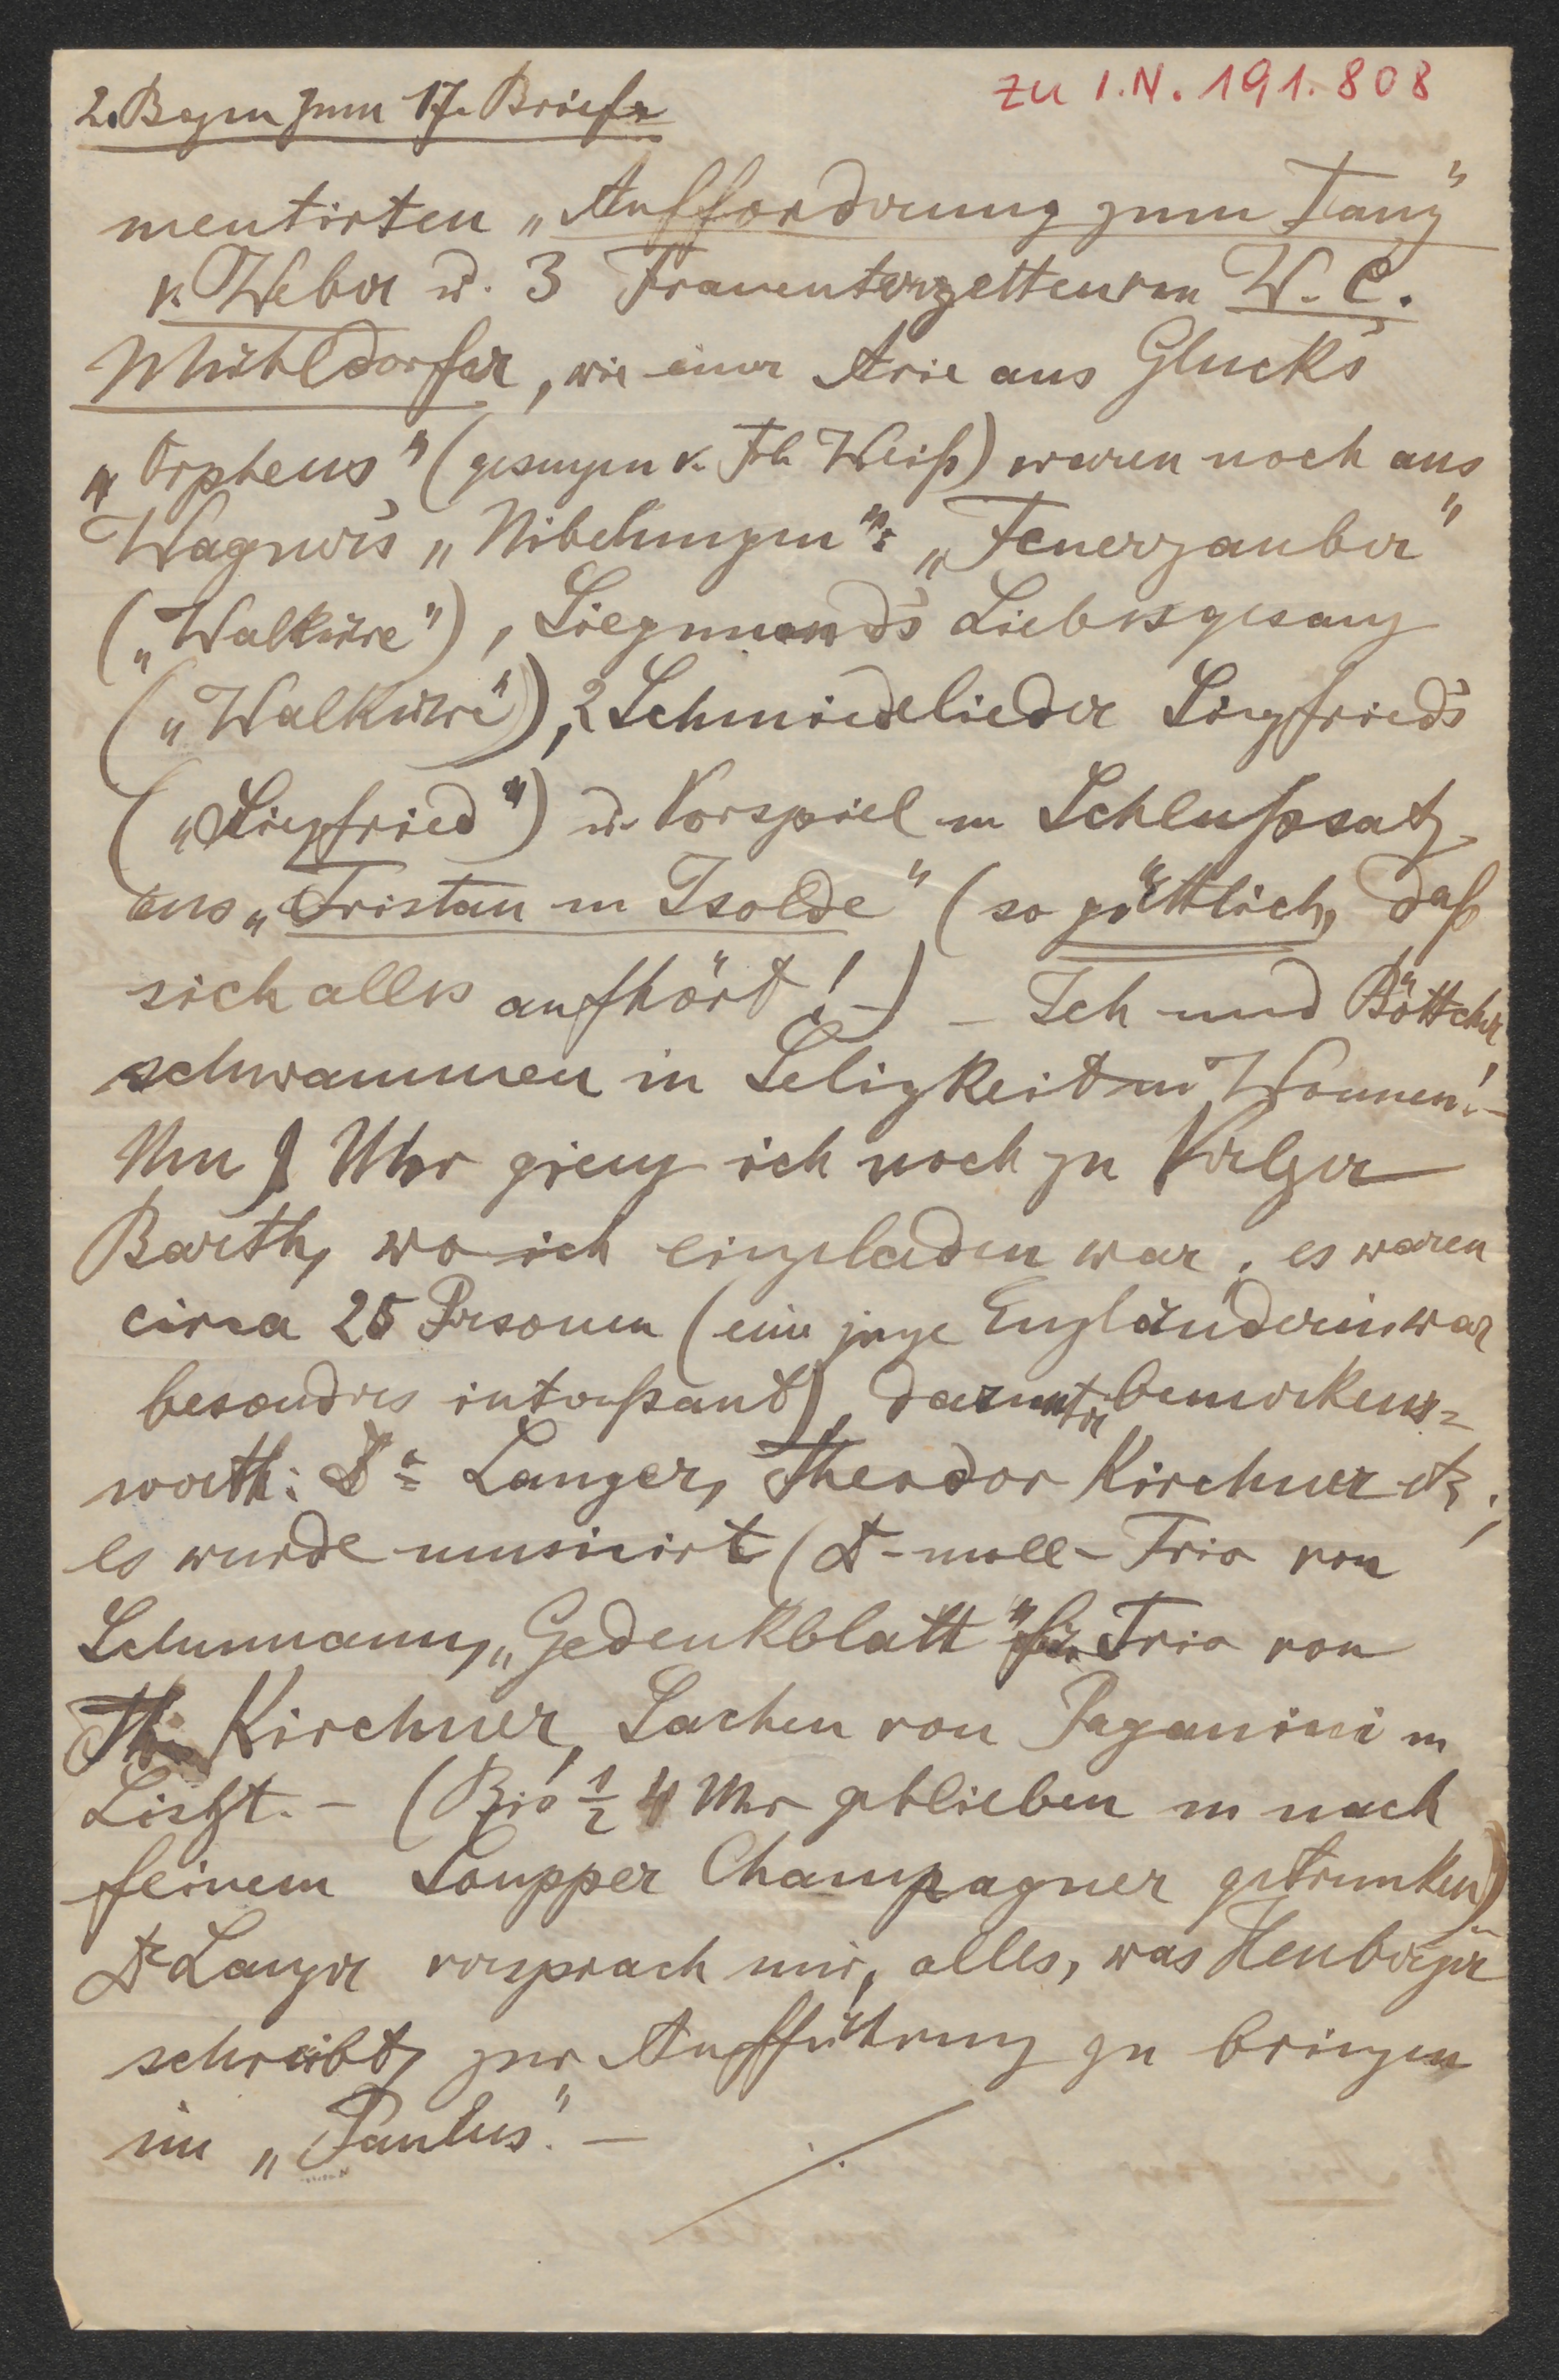 zu I.N. 191.808
2. Bogen zum 17. Briefe
mentirten „Aufforderung zum Tanz"
v. Weber u. 3 Frauenterzetten von W. C.
Mühldorfer, wie einer Arie aus Gluck's
„Orpheus" (gesungen v. Frl. Weiß) waren noch aus
Wagner's „Nibelungen": „Feuerzauber"
(„Walküre"), Siegmund's Liebesgesang
(„Walküre"), 2 Schmiedelieder Siegfried's
(„Siegfried") u. Vorspiel u Schlußsatz
aus „Tristan u Isolde" (so göttlich, daß
sich alles aufhört! -) - Ich und Böttcher
schwammen in Seligkeit u Wonnen! -
Um 9 Uhr gieng ich noch zu Verleger
Barth, wo ich eingeladen war, es waren
circa 25 Personen (eine junge Engländerin war
besonders interessant), darunter bemerkens-
werth: Dr. Langer, Theodor Kirchner etz.;
es wurde musicirt (D-moll-Trio von
Schumann, „Gedenkblatt" für Trio von
Th. Kirchner, Sachen von Paganini u
Liszt. - (Bis ½ 4 Uhr geblieben u nach
feinem Soupper Champagner getrunken)
Dr Langer versprach mir, alles, was Heuberger
schreibt, zur Aufführung zu bringen
im „Paulus". -